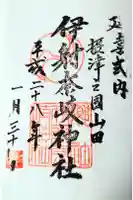 延喜式内
摂津三國山田
伊射奈岐神社
平成二十八年
一月三十日